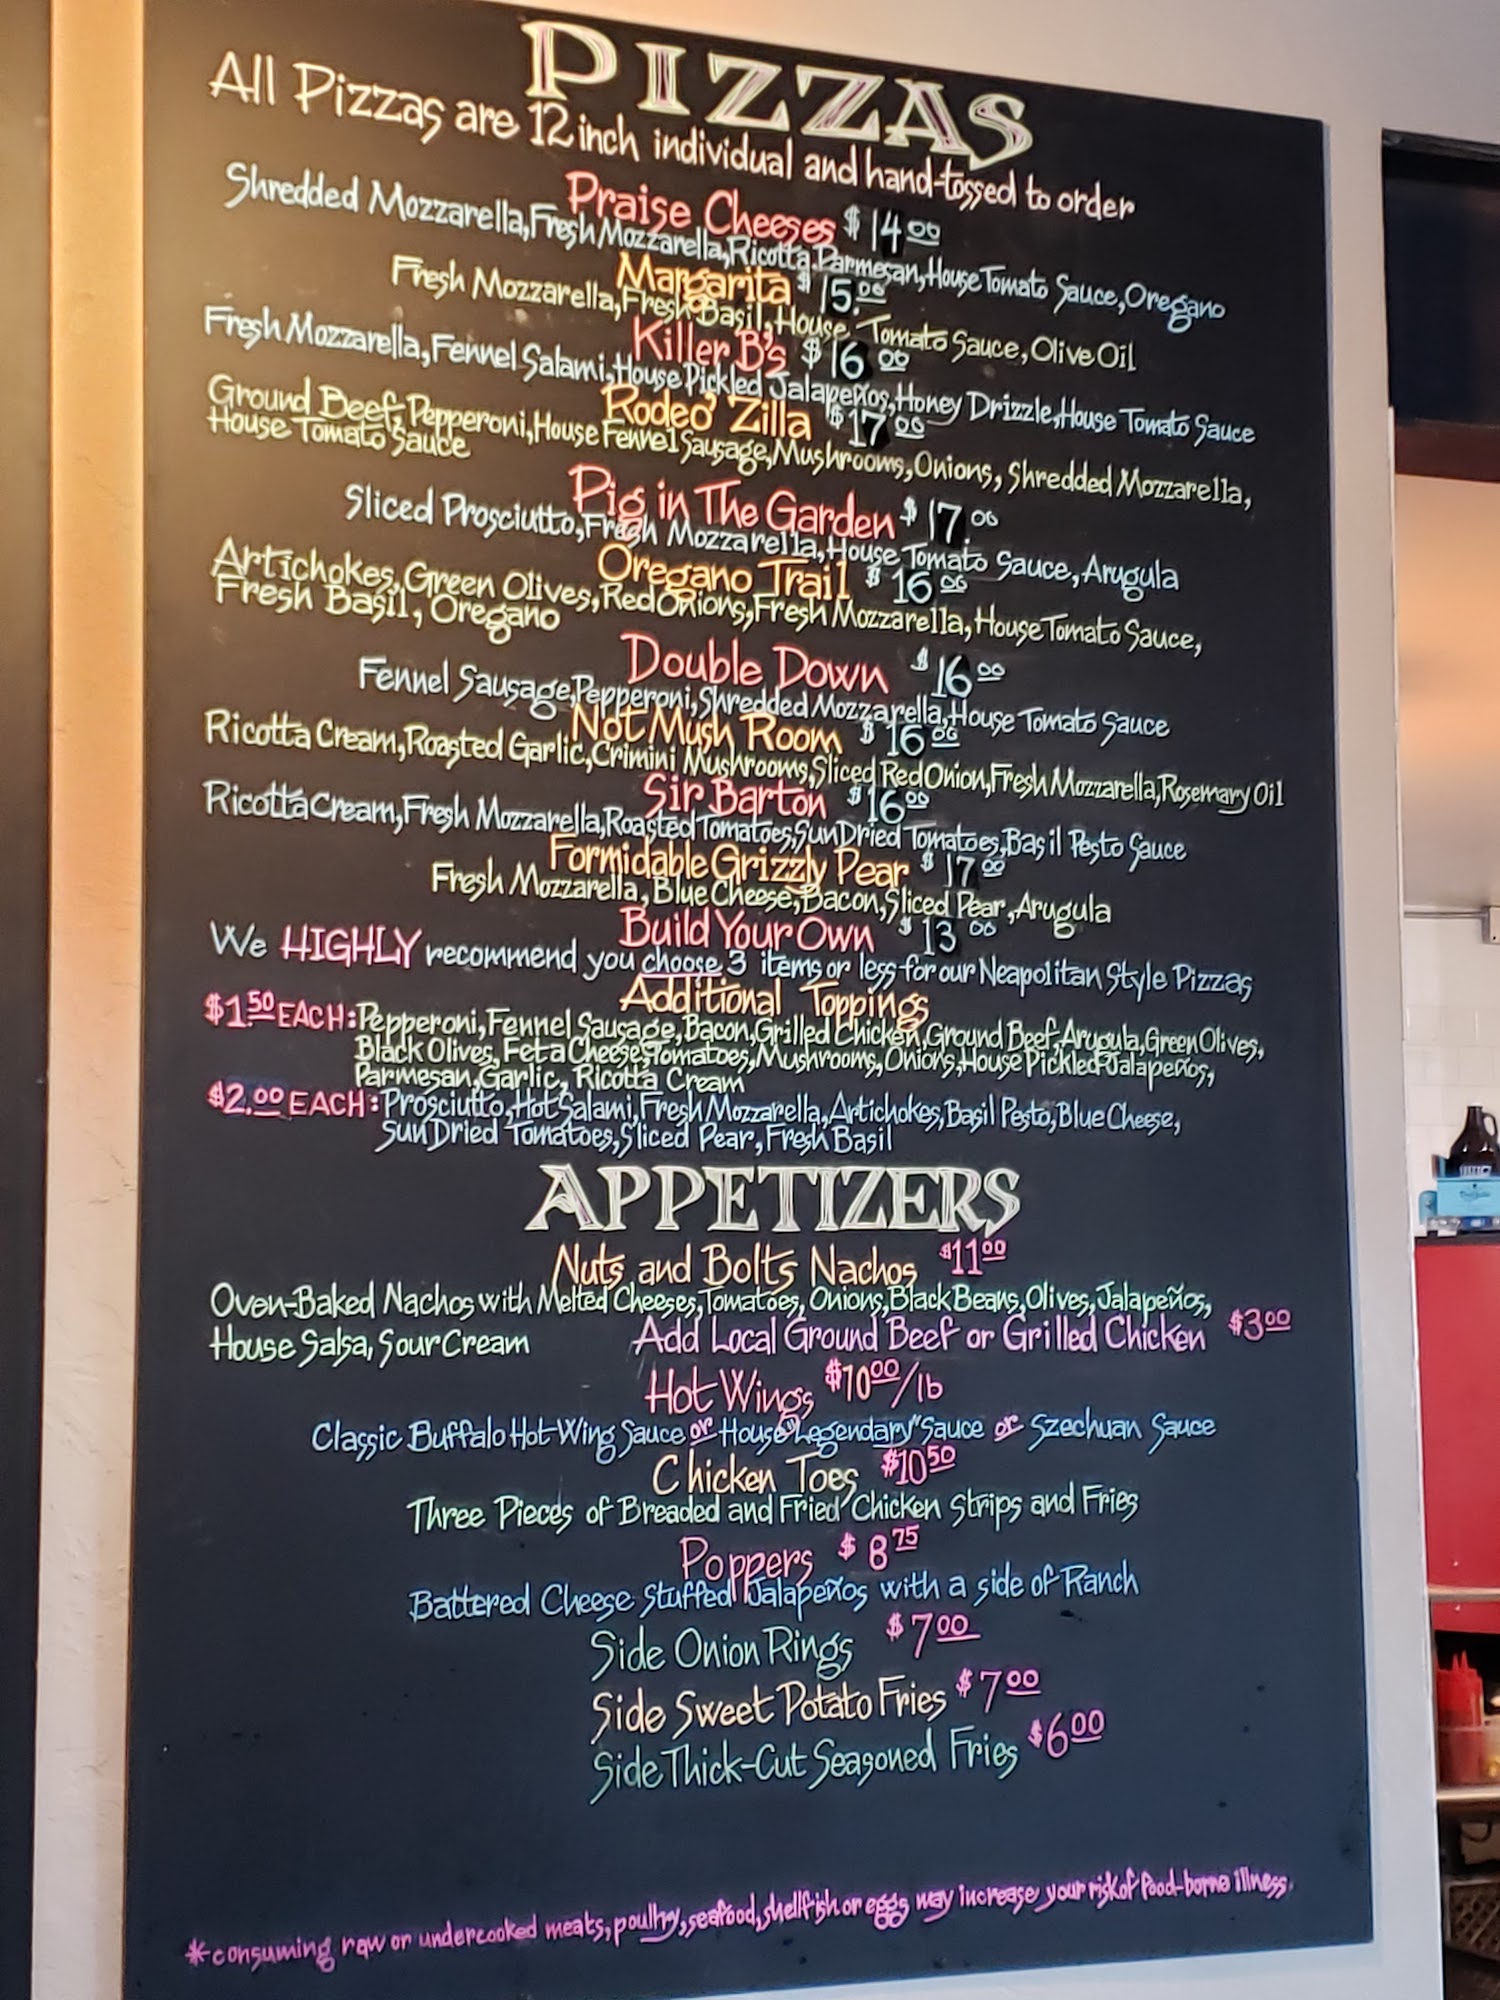 PIZZAS
All Pizzas are 12 inch individual and hand-tossed to order
Praise Cheeses $14.00
Shredded Mozzarella, Fresh Mozzarella, Ricotta, Parmesan, House Tomato Sauce, Oregano
Margarita $15.00
Fresh Mozzarella, Fresh Basil, House Tomato Sauce, Olive Oil
Killer B's $16 00
Fresh Mozzarella, Fennel Salami, House Pickled Jalapeños, Honey Drizzle, House Tomato Sauce
Rodeo Zilla $17 00
Ground Beef, Pepperoni, House Fennel Sausage, Mushrooms, Onions, Shredded Mozzarella,
House Tomato Sauce
Pig in The Garden $17.00
Sliced Prosciutto, Fresh Mozzarella, House Tomato Sauce, Arugula
Oregano Trail $16 00
Artichokes, Green Olives, Red Onions, Fresh Mozzarella, House Tomato Sauce,
Fresh Basil, Oregano
Double Down $16 00
Fennel Sausage, Pepperoni, Shredded Mozzarella, House Tomato Sauce
Not Mush Room $16 00
Ricotta Cream, Roasted Garlic, Crimini Mushrooms, Sliced Red Onion, Fresh Mozzarella, Rosemary Oil
Sir Barton $16 00
Ricotta Cream, Fresh Mozzarella, Roasted Tomatoes, Sun Dried Tomatoes, Basil Pesto Sauce
Formidable Grizzly Pear $17 00
Fresh Mozzarella, Blue Cheese, Bacon, Sliced Pear, Arugula
Build Your Own $13 00
We HIGHLY recommend you choose 3 items or less for our Neapolitan Style Pizzas
Additional Toppings
$1.50 EACH: Pepperoni, Fennel Sausage, Bacon, Grilled Chicken, Ground Beef, Arugula, Green Olives,
Black Olives, Feta Cheese, Tomatoes, Mushrooms, Onions, House Pickled Jalapeños,
Parmesan, Garlic, Ricotta Cream
$2.00 EACH: Prosciutto, Hot Salami, Fresh Mozzarella, Artichokes, Basil Pesto, Blue Cheese,
Sun Dried Tomatoes, Sliced Pear, Fresh Basil
APPETIZERS
Nuts and Bolts Nachos $11 00
Oven-Baked Nachos with Melted Cheeses, Tomatoes, Onions, Black Beans, Olives, Jalapeños,
House Salsa, Sour Cream Add Local Ground Beef or Grilled Chicken $3 00
Hot Wings $10 00/lb
Classic Buffalo Hot Wing Sauce or House "Legendary" Sauce or Szechuan Sauce
Chicken Toes $10 50
Three Pieces of Breaded and Fried Chicken Strips and Fries
Poppers $8 75
Battered Cheese Stuffed Jalapeños with a side of Ranch
Side Onion Rings $7 00
Side Sweet Potato Fries $7 00
Side Thick-Cut Seasoned Fries $6 00
*consuming raw or undercooked meats, poultry, seafood, shellfish or eggs may increase your risk of food-borne illness.